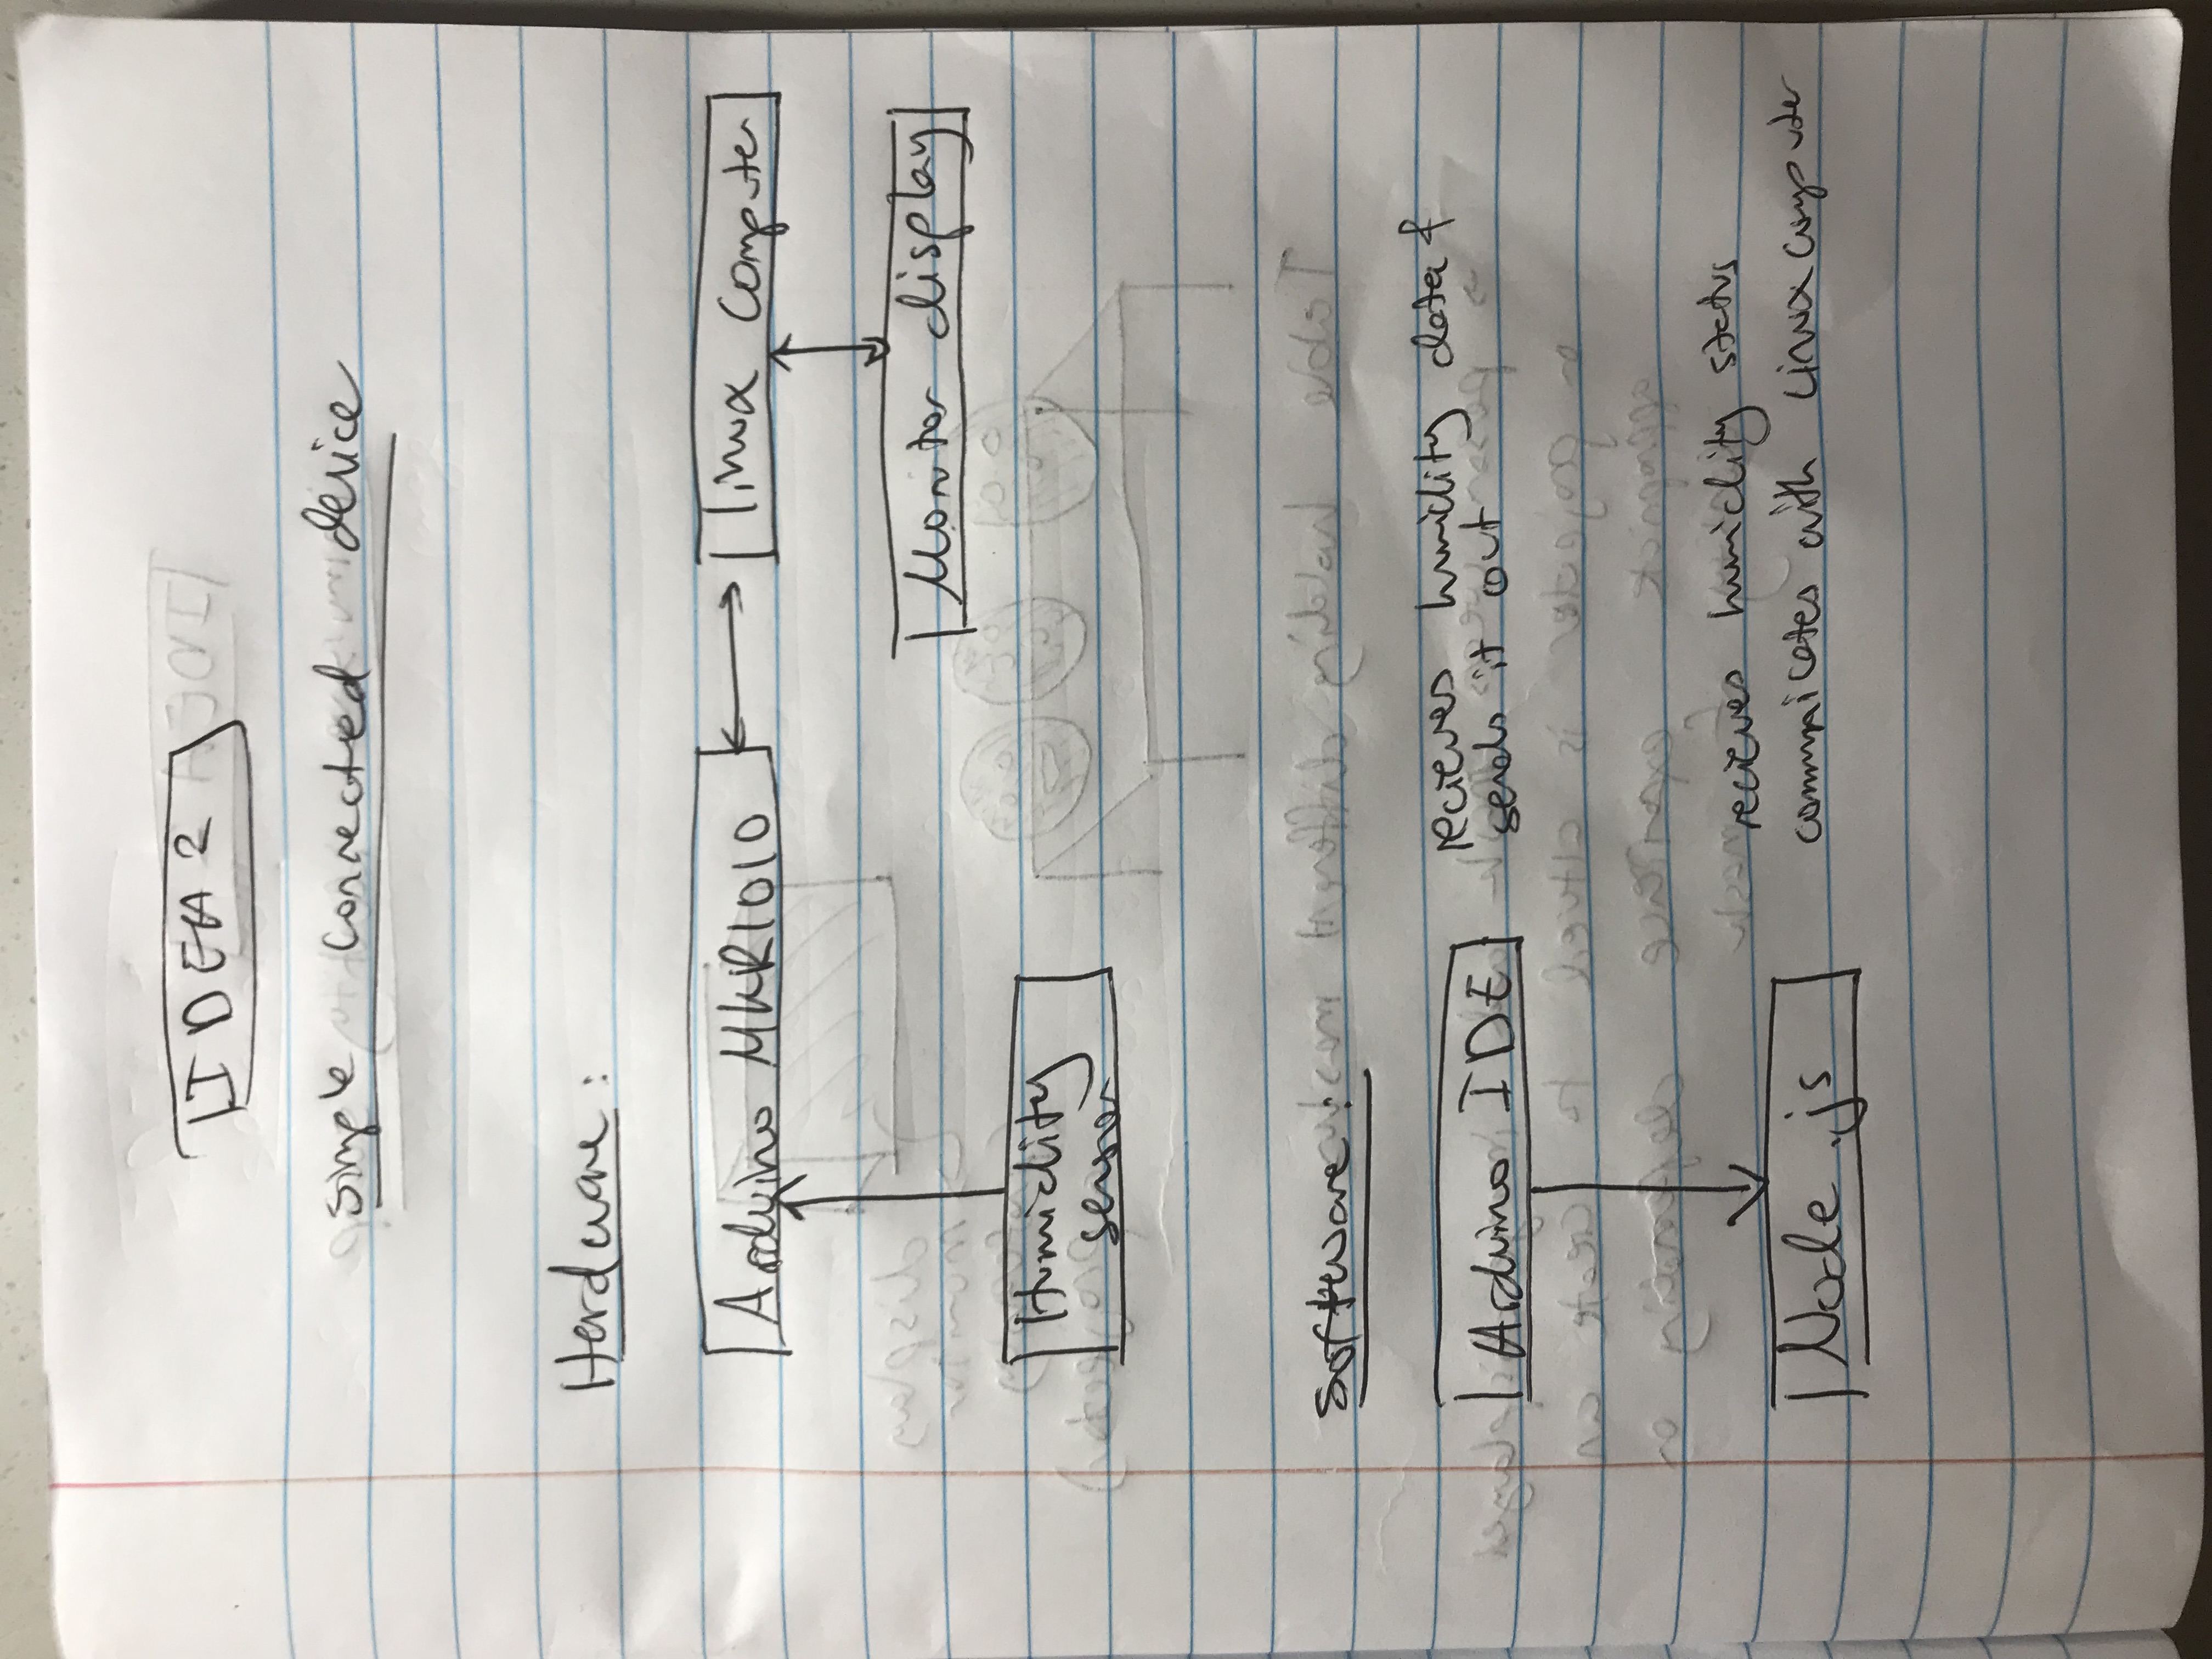 IDEA 2
Simple Connected device
Hardware:
Arduino MKR1010
linux Computer
Monitor display
Humidity
sensor
Software:
Arduino IDE
recieves humidity data &
sends it out
Node.js
recieves humidity status
communicates with Linux computer